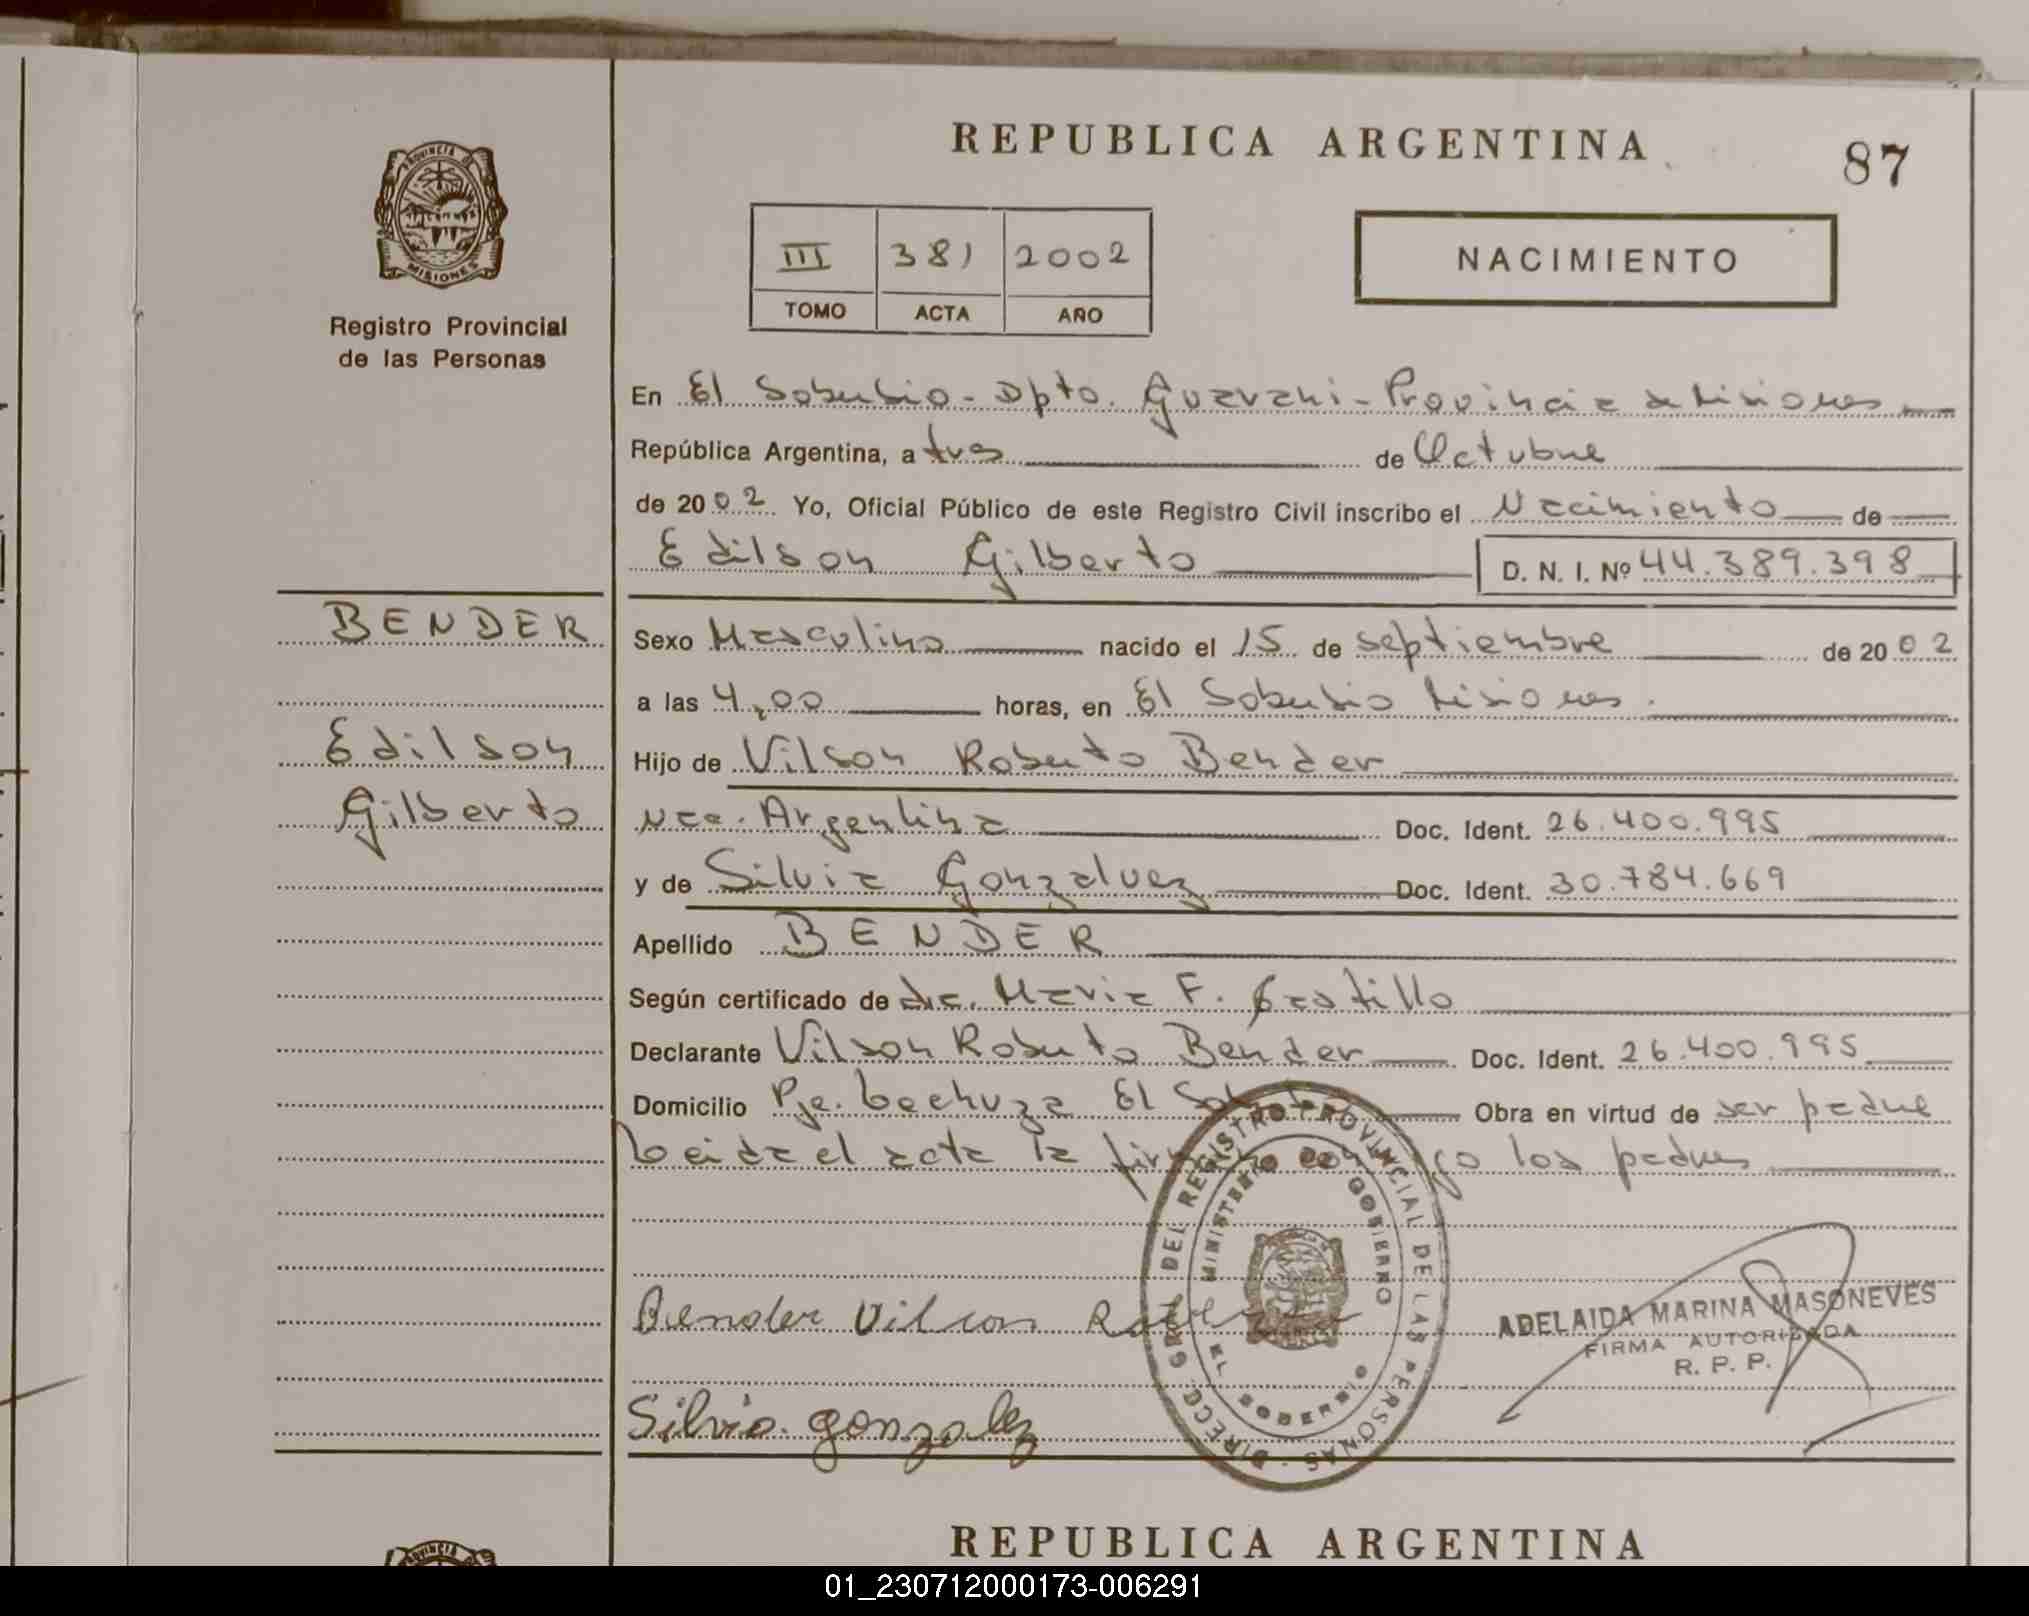 REPUBLICA ARGENTINA
87
PROVINCIA DE
MISIONES
Registro Provincial
de las Personas
III 381 2002
TOMO ACTA AÑO
NACIMIENTO
En El Soberbio - Dpto. Guarani - Provincia de Misiones
República Argentina, a tres de Octubre
de 2002 Yo, Oficial Público de este Registro Civil inscribo el Nacimiento de
Edilson Gilberto D. N. I. Nº 44.389.398
BENDER
Edilson
Gilberto
Sexo Masculino nacido el 15 de septiembre de 2002
a las 4,00 horas, en El Soberbio Misiones.
Hijo de Vilson Roberto Bender
nac. Argentina Doc. Ident. 26.400.995
y de Silvia Gonzalvez Doc. Ident. 30.784.669
Apellido BENDER
Según certificado de dra. Maria F. Castillo
Declarante Vilson Roberto Bender Doc. Ident. 26.400.995
Domicilio Pje. Lechuza El Soberbio Obra en virtud de ser padre
Leida el acta la firman conmigo los padres
DIRECC. GRAL. DEL REGISTRO PROVINCIAL DE LAS PERSONAS
MINISTERIO DE GOBIERNO
EL SOBERBIO
Bender Vilson
ADELAIDA MARINA MASONEVES
FIRMA AUTORIZADA
R. P. P.
Silvia. gonzalez
REPUBLICA ARGENTINA
PROVINCIA
01_230712000173-006291